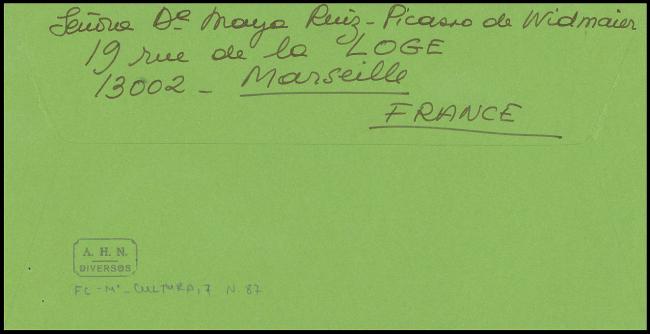 Señora Dª Maya Ruiz-Picasso de Widmaier
19 rue de la LOGE
13002 - Marseille
FRANCE
A. H. N.
DIVERSOS
FC-Mº-CULTURA,7 N. 87